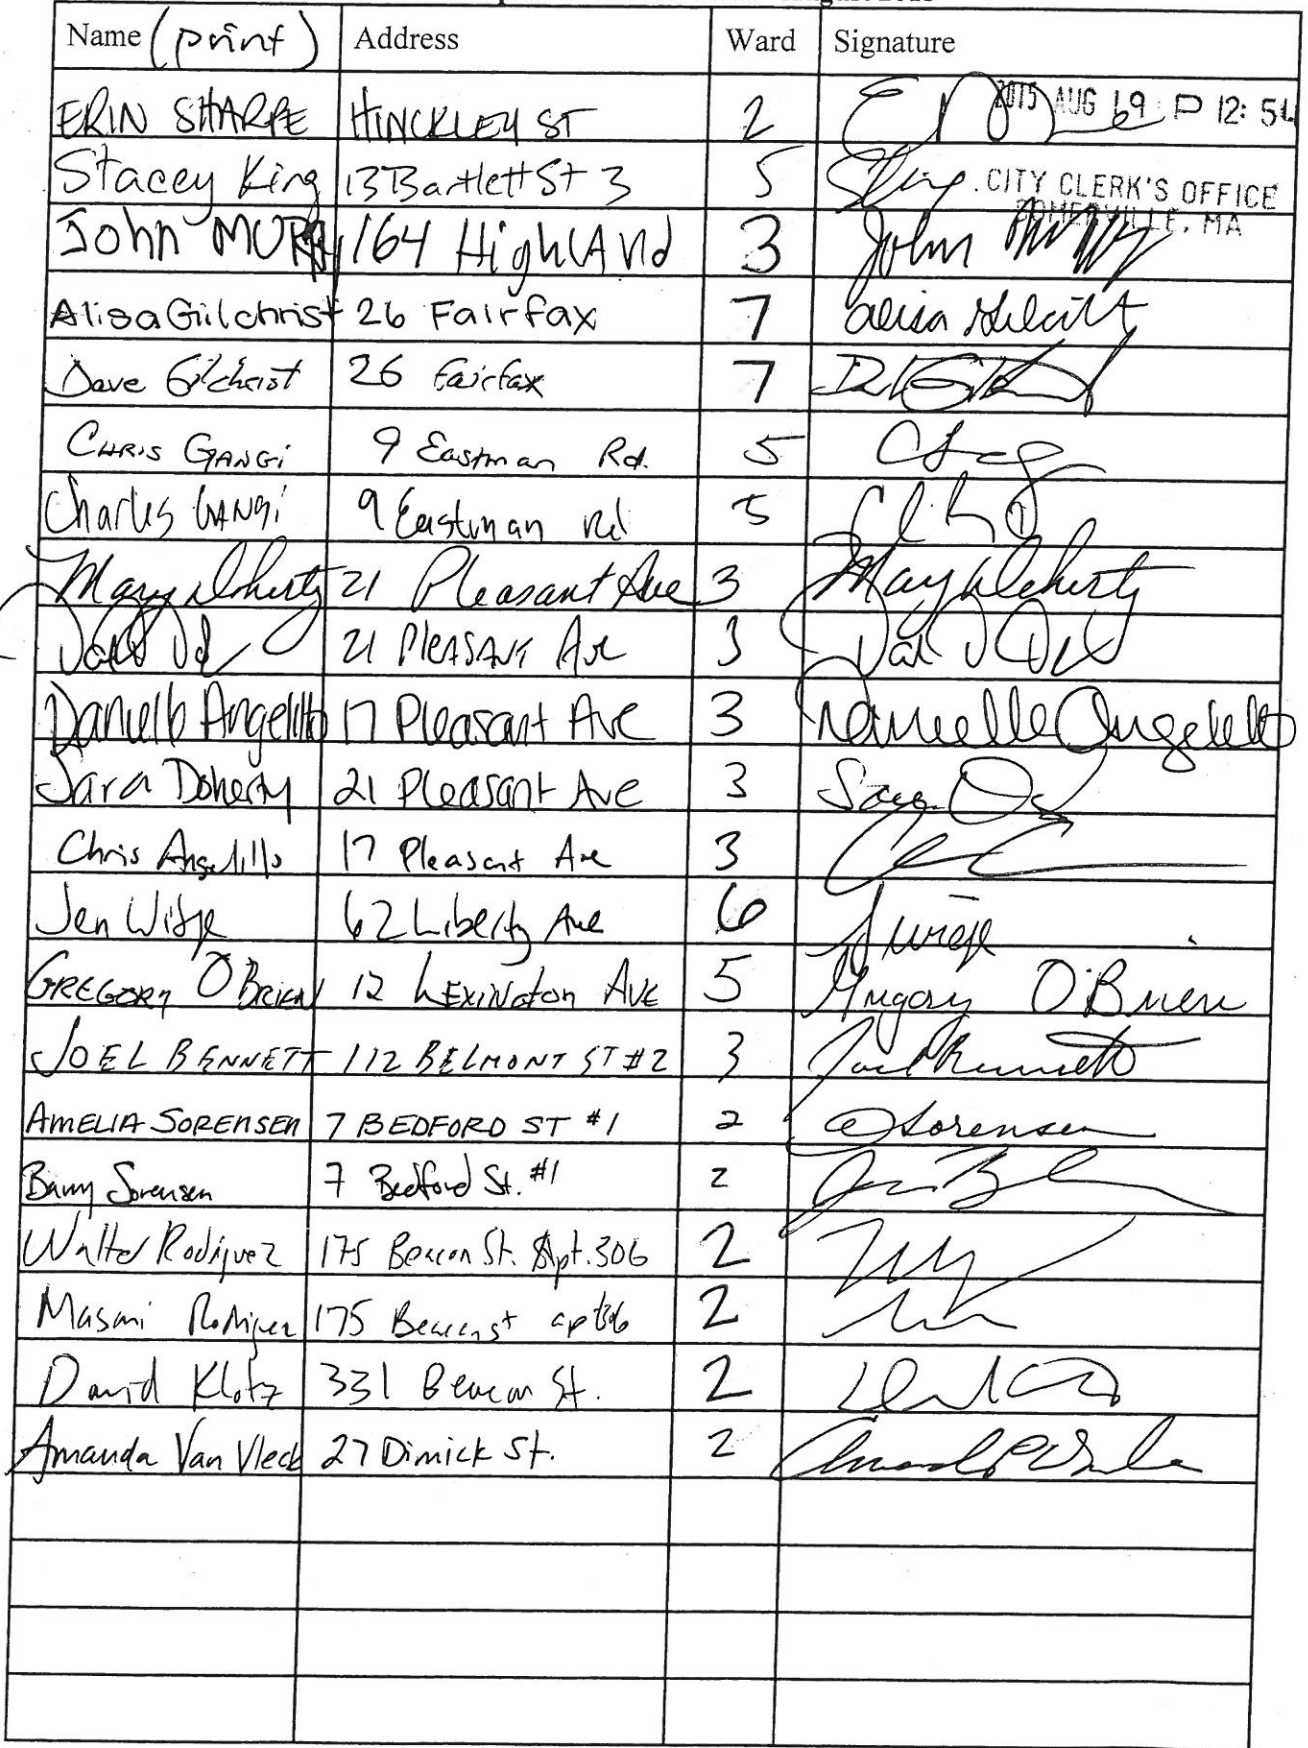 Name (print) Address Ward Signature
ERIN SHARPE HINCKLEY ST 2
2015 AUG 19 P 12: 54
Stacey King 13 Bartlett St 3 5
CITY CLERK'S OFFICE
SOMERVILLE, MA
John MURPhy 164 HighlANd 3 John Murphy
Alisa Gilchrist 26 Fairfax 7 Alisa Gilchrist
Dave Gilchrist 26 Fairfax 7
CHRIS GANGi 9 Eastman Rd. 5
Charles GANGi 9 Eastman Rd 5
Mary Doherty 21 Pleasant Ave 3 Mary Doherty
21 PLEASANT Ave 3
Danielle Angelillo 17 Pleasant Ave 3 Danielle Angelillo
Sara Doherty 21 Pleasant Ave 3
Chris Angelillo 17 Pleasant Ave 3
Jen 62 Liberty Ave 6
GREGORY O'BRIEN 12 LEXiNgton AVE 5 Gregory O'Brien
JOEL BENNETT 112 BELMONT ST #2 3 Joel Bennett
AMELIA SORENSEN 7 BEDFORD ST #1 2 Sorensen
Barry Sorensen 7 Bedford St. #1 2
Walter Rodriguez 175 Beacon St. Apt. 306 2
Rodriguez 175 Beacon st 2
David Klotz 331 Beacon St. 2
Amanda Van Vleck 27 Dimick St. 2